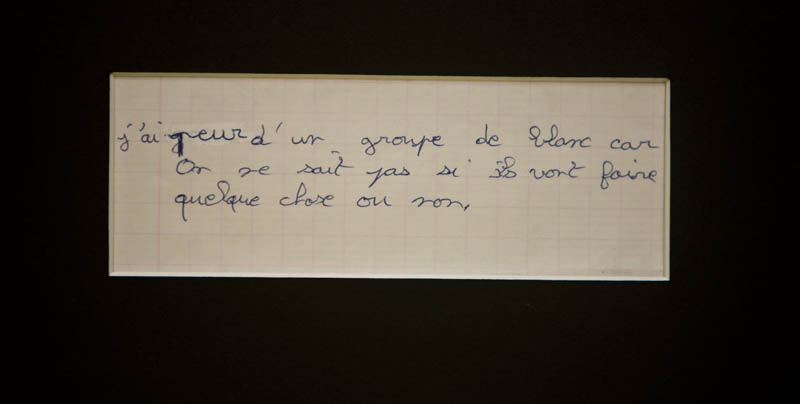 j'ai peur d'un groupe de blanc car
On ne sait pas si ils vont faire
quelque chose ou non.